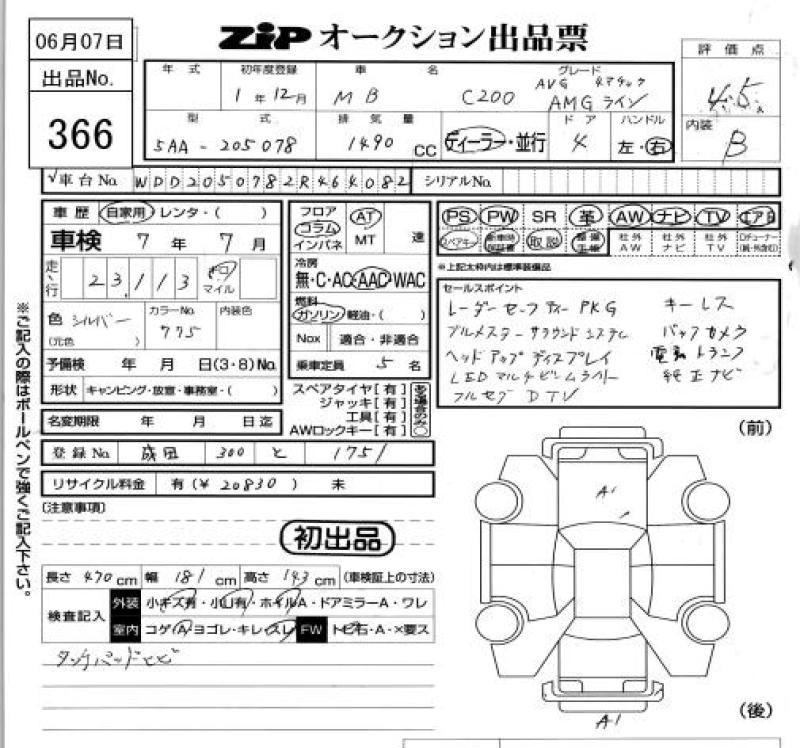 06月07日
ZiP オークション出品票
出品No.
366
年式 初年度登録 車名 グレード
1年12月 MB C200 AVG 4マチック AMGライン
型式 排気量 ドア ハンドル
5AA-205078 1490 CC ディーラー・並行 4 左・右
評価点
4.5
内装
B
√車台No. WDD2050782R464082 シリアルNo.
車歴 自家用 レンタ・( )
車検 7年7月
走行 23,113 キロ マイル
色 シルバー カラーNo. 775 内装色
(元色 )
予備検 年 月 日(3・8)No.
形状 キャンピング・放宣・事務室・( )
名変期限 年 月 日迄
フロア コラム インパネ AT MT 速
冷房
無・C・AC・AAC・WAC
燃料
ガソリン・軽油・( )
Nox 適合・非適合
乗車定員 5名
スペアタイヤ[有]
ジャッキ[有]
工具[有]
AWロックキー[有]
有る場合のみ○
PS PW SR 革 AW ナビ TV エアB
スペアキー 新車時保証書 取説 整備手帳 社外AW 社外ナビ 社外TV Dチューナー
※上記太枠内は標準装備品
セールスポイント
レーダーセーフティーPKG キーレス
ブルメスターサラウンドシステム バックカメラ
ヘッドアップディスプレイ 電動トランク
LEDマルチビームライト 純正ナビ
フルセグDTV
登録No. 成田 300 と 1751
リサイクル料金 有(¥20830) 未
〔注意事項〕
初出品
長さ 470cm 幅 181cm 高さ 143cm (車検証上の寸法)
検査記入
外装 小キズ有・小凹有・ホイルA・ドアミラーA・ワレ
室内 コゲ・A・ヨゴレ・キレ・スレ FW トビ石・A・×要ス
タンクパッドトビ
※ご記入の際はボールペンで強くご記入下さい。
(前)
A1
A1
(後)